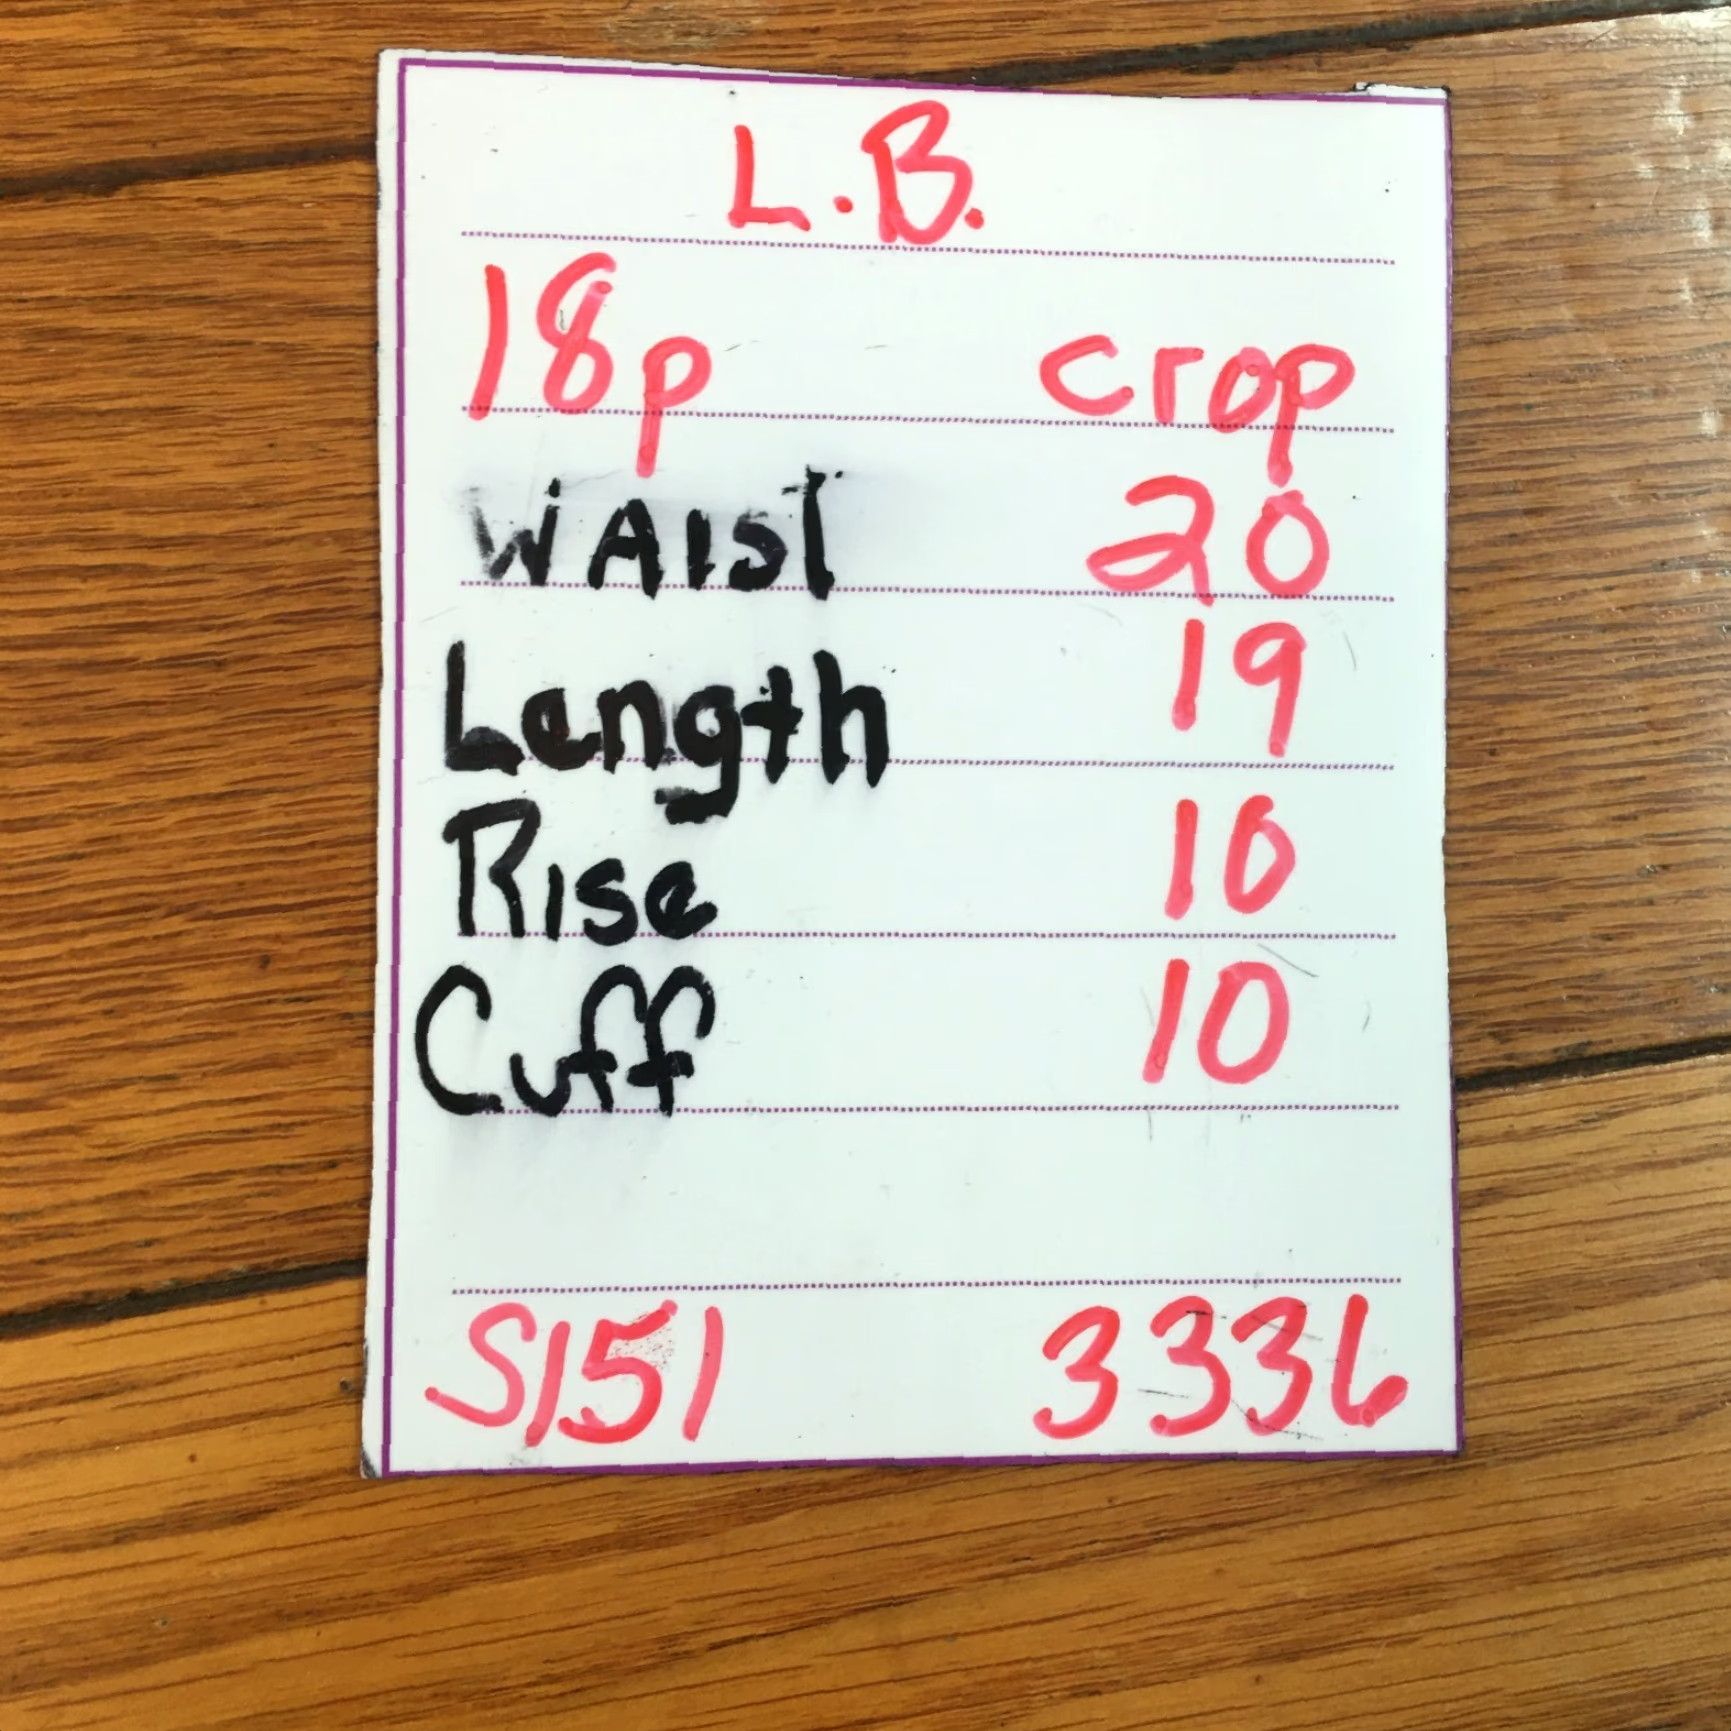 L.B.
18p crop
WAIST 20
Length 19
Rise 10
Cuff 10
S151 3336